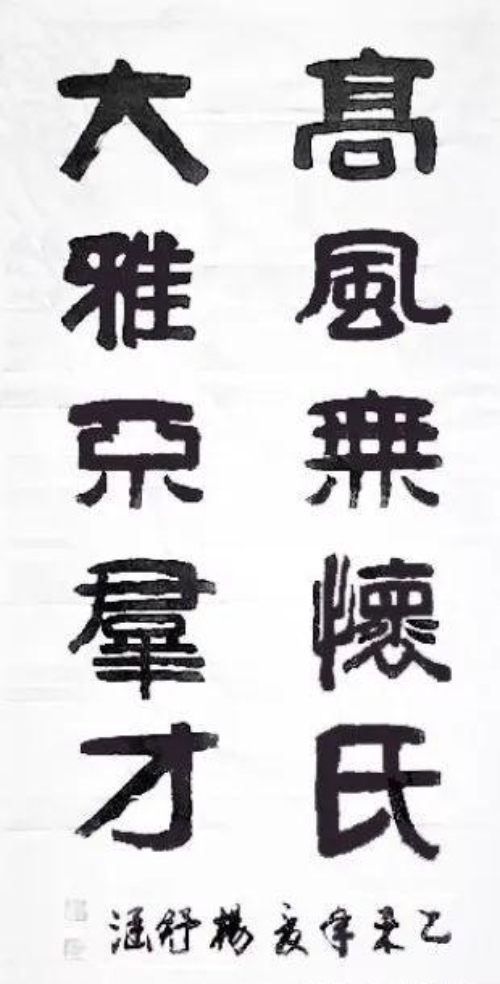 髙風無懷氏
大雅不羣才
乙未年夏楊舒涵